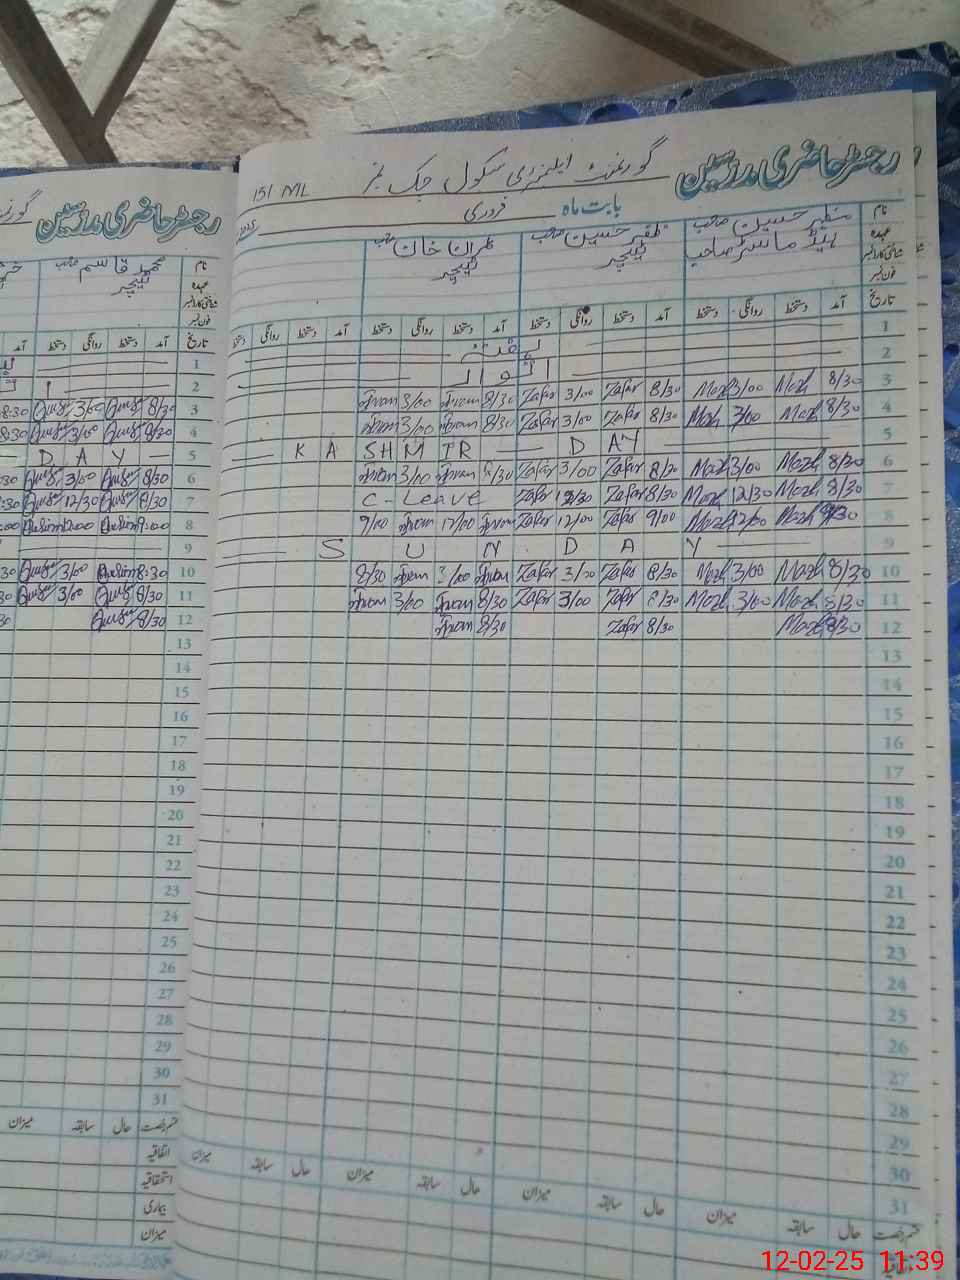 رجسٹر حاضری مدرسین گورنمنٹ ایلیمنٹری سکول چک نمبر 151 ML
بابت ماہ فروری
نام منظور حسین صاحب ظفر حسین صاحب عمران خان صاحب
عہدہ ہیڈ ماسٹر صاحب ٹیچر ٹیچر
شناختی کارڈ نمبر
فون نمبر
تاریخ آمد دستخط روانگی دستخط آمد دستخط روانگی دستخط آمد دستخط روانگی دستخط آمد دستخط روانگی دستخط
1
2 اتوار
3 8/30 Mazh 3/00 Mazh 8/30 Zafar 3/00 Zafar 8/30 Imran 3/00 Imran
4 8/30 Mazh 3/00 Mazh 8/30 Zafar 3/00 Zafar 8/30 Imran 3/00 Imran
5 KASHMIR DAY
6 8/30 Mazh 3/00 Mazh 8/30 Zafar 3/00 Zafar 8/30 Imran 3/00 Imran
7 8/30 Mazh 12/30 Mazh 8/30 Zafar 12/30 Zafar C-Leave
8 Mazh 12/00 Mazh 9/00 Zafar 12/00 Zafar Imran 12/00 Imran 9/00
9 SUNDAY
10 8/30 Mazh 3/00 Mazh 8/30 Zafar 3/00 Zafar Imran 3/00 Imran 8/30
11 8/30 Mazh 3/00 Mazh 8/30 Zafar 3/00 Zafar 8/30 Imran 3/00 Imran
12 8/30 Mazh 8/30 Zafar 8/30 Imran
13
14
15
16
17
18
19
20
21
22
23
24
25
26
27
28
29
30
31
قسم رخصت حال سابقہ میزان حال سابقہ میزان حال سابقہ میزان حال سابقہ میزان
رجسٹر حاضری مدرسین
نام محمد قاسم صاحب
عہدہ ٹیچر
شناختی کارڈ نمبر
فون نمبر
تاریخ آمد دستخط روانگی دستخط آمد
1
2
3 8/30 3/00 8:30
4 8/30 3/00 8:30
5 DAY
6 8/30 3/00
7 8/30 12/30
8 9:00 12:00
9
10 8:30 3/00
11 8/30 3/00
12 8/30
13
14
15
16
17
18
19
20
21
22
23
24
25
26
27
28
29
30
31
قسم رخصت حال سابقہ میزان
اتفاقیہ
استحقاقیہ
بیماری
میزان
12-02-25 11:39